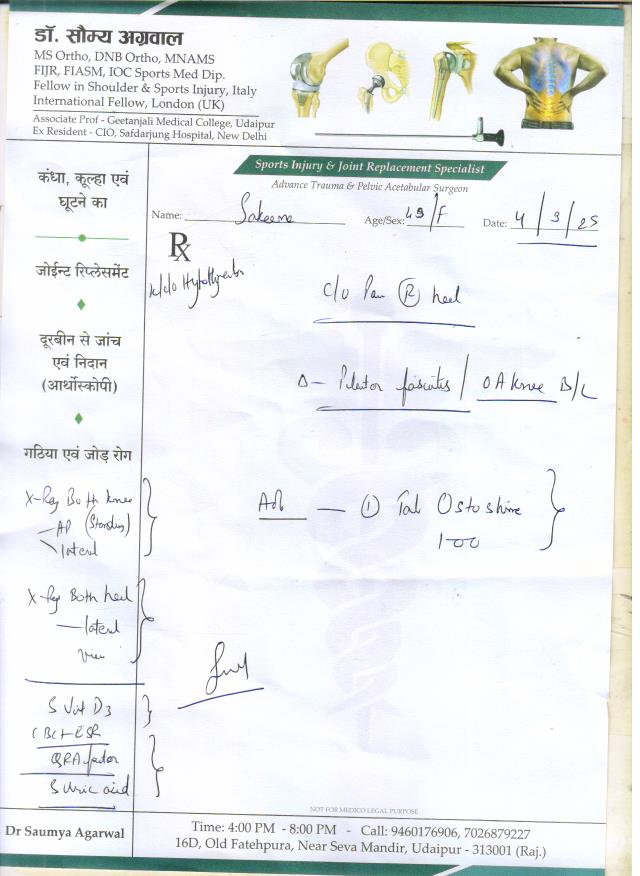 डॉ. सौम्य अग्रवाल
MS Ortho, DNB Ortho, MNAMS
FIJR, FIASM, IOC Sports Med Dip.
Fellow in Shoulder & Sports Injury, Italy
International Fellow, London (UK)
Associate Prof - Geetanjali Medical College, Udaipur
Ex Resident - CIO, Safdarjung Hospital, New Delhi
Sports Injury & Joint Replacement Specialist
Advance Trauma & Pelvic Acetabular Surgeon
Name: Sakeena Age/Sex: 49/F Date: 4/3/25
Rx
कंधा, कूल्हा एवं
घूटने का
जोईन्ट रिप्लेसमेंट
दूरबीन से जांच
एवं निदान
(आर्थोस्कोपी)
गठिया एवं जोड़ रोग
K/C/O
C/O Pain (R) heel
Δ - Plantar fasciitis / OA knee B/L
Adv — (1) Tab Ostoshine
1-00
X-Ray Both knee
— AP (Standing)
— lateral
X-Ray Both heel
— lateral
View
S Vit D3
CBC + ESR
RA factor
S Uric acid
NOT FOR MEDICO LEGAL PURPOSE
Dr Saumya Agarwal
Time: 4:00 PM - 8:00 PM - Call: 9460176906, 7026879227
16D, Old Fatehpura, Near Seva Mandir, Udaipur - 313001 (Raj.)